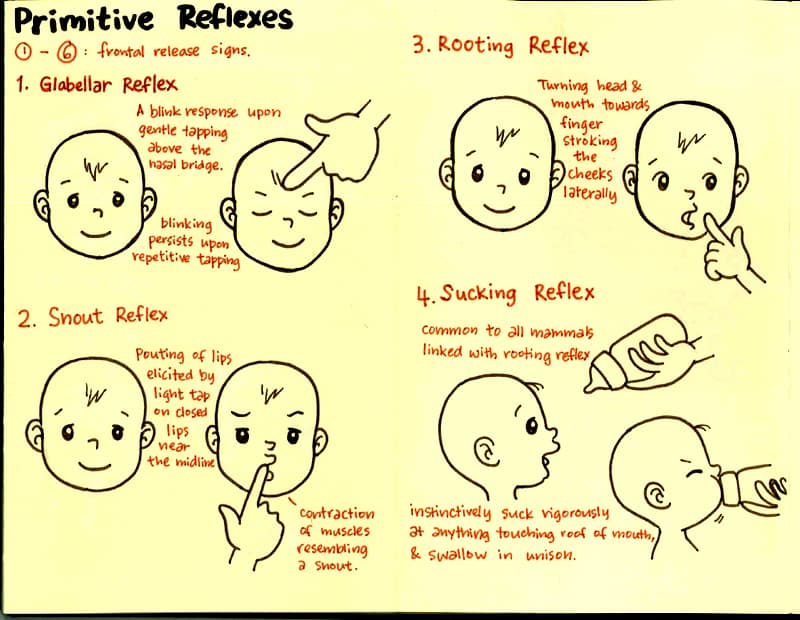 Primitive Reflexes
① - ⑥ : frontal release signs.
1. Glabellar Reflex
A blink response upon
gentle tapping
above the
nasal bridge.
blinking
persists upon
repetitive tapping
2. Snout Reflex
Pouting of lips
elicited by
light tap
on closed
lips
near
the midline
contraction
of muscles
resembling
a snout.
3. Rooting Reflex
Turning head &
mouth towards
finger
stroking
the
cheeks
laterally
4. Sucking Reflex
common to all mammals
linked with rooting reflex
instinctively suck vigorously
at anything touching roof of mouth,
& swallow in unison.